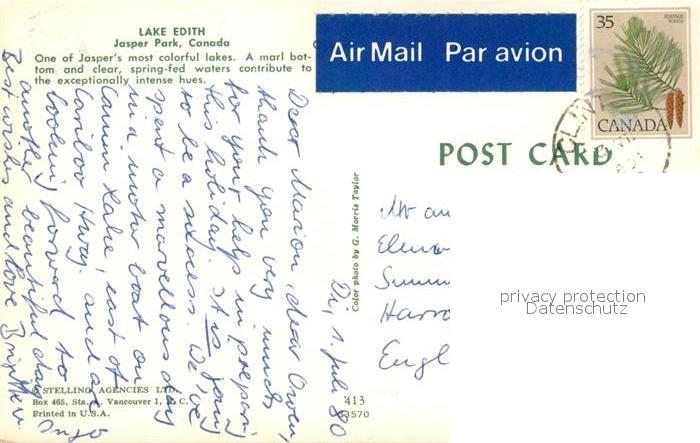 LAKE EDITH
Jasper Park, Canada
One of Jasper's most colorful lakes. A marl bot-
tom and clear, spring-fed waters contribute to
the exceptionally intense hues.
Air Mail Par avion
35
POSTAGE POSTES
CANADA
CLINT
POST CARD
Di, 1. Juli 80
Dear Marion, dear Owen,
thank you very much
for your help in preparing
this holiday. It is going
to be a success. We've
spent a marvellous day
in a motor boat on
Canim Lake, east of
Cariboo Hwy. and are
looking forward to
another beautiful days
Best wishes and love
Color photo by G. Morris Taylor
Summ
Harro
Engl
privacy protection
Datenschutz
STELLING AGENCIES LTD.
Box 465, Sta. Vancouver 1, B.C.
Printed in U.S.A.
413
3570